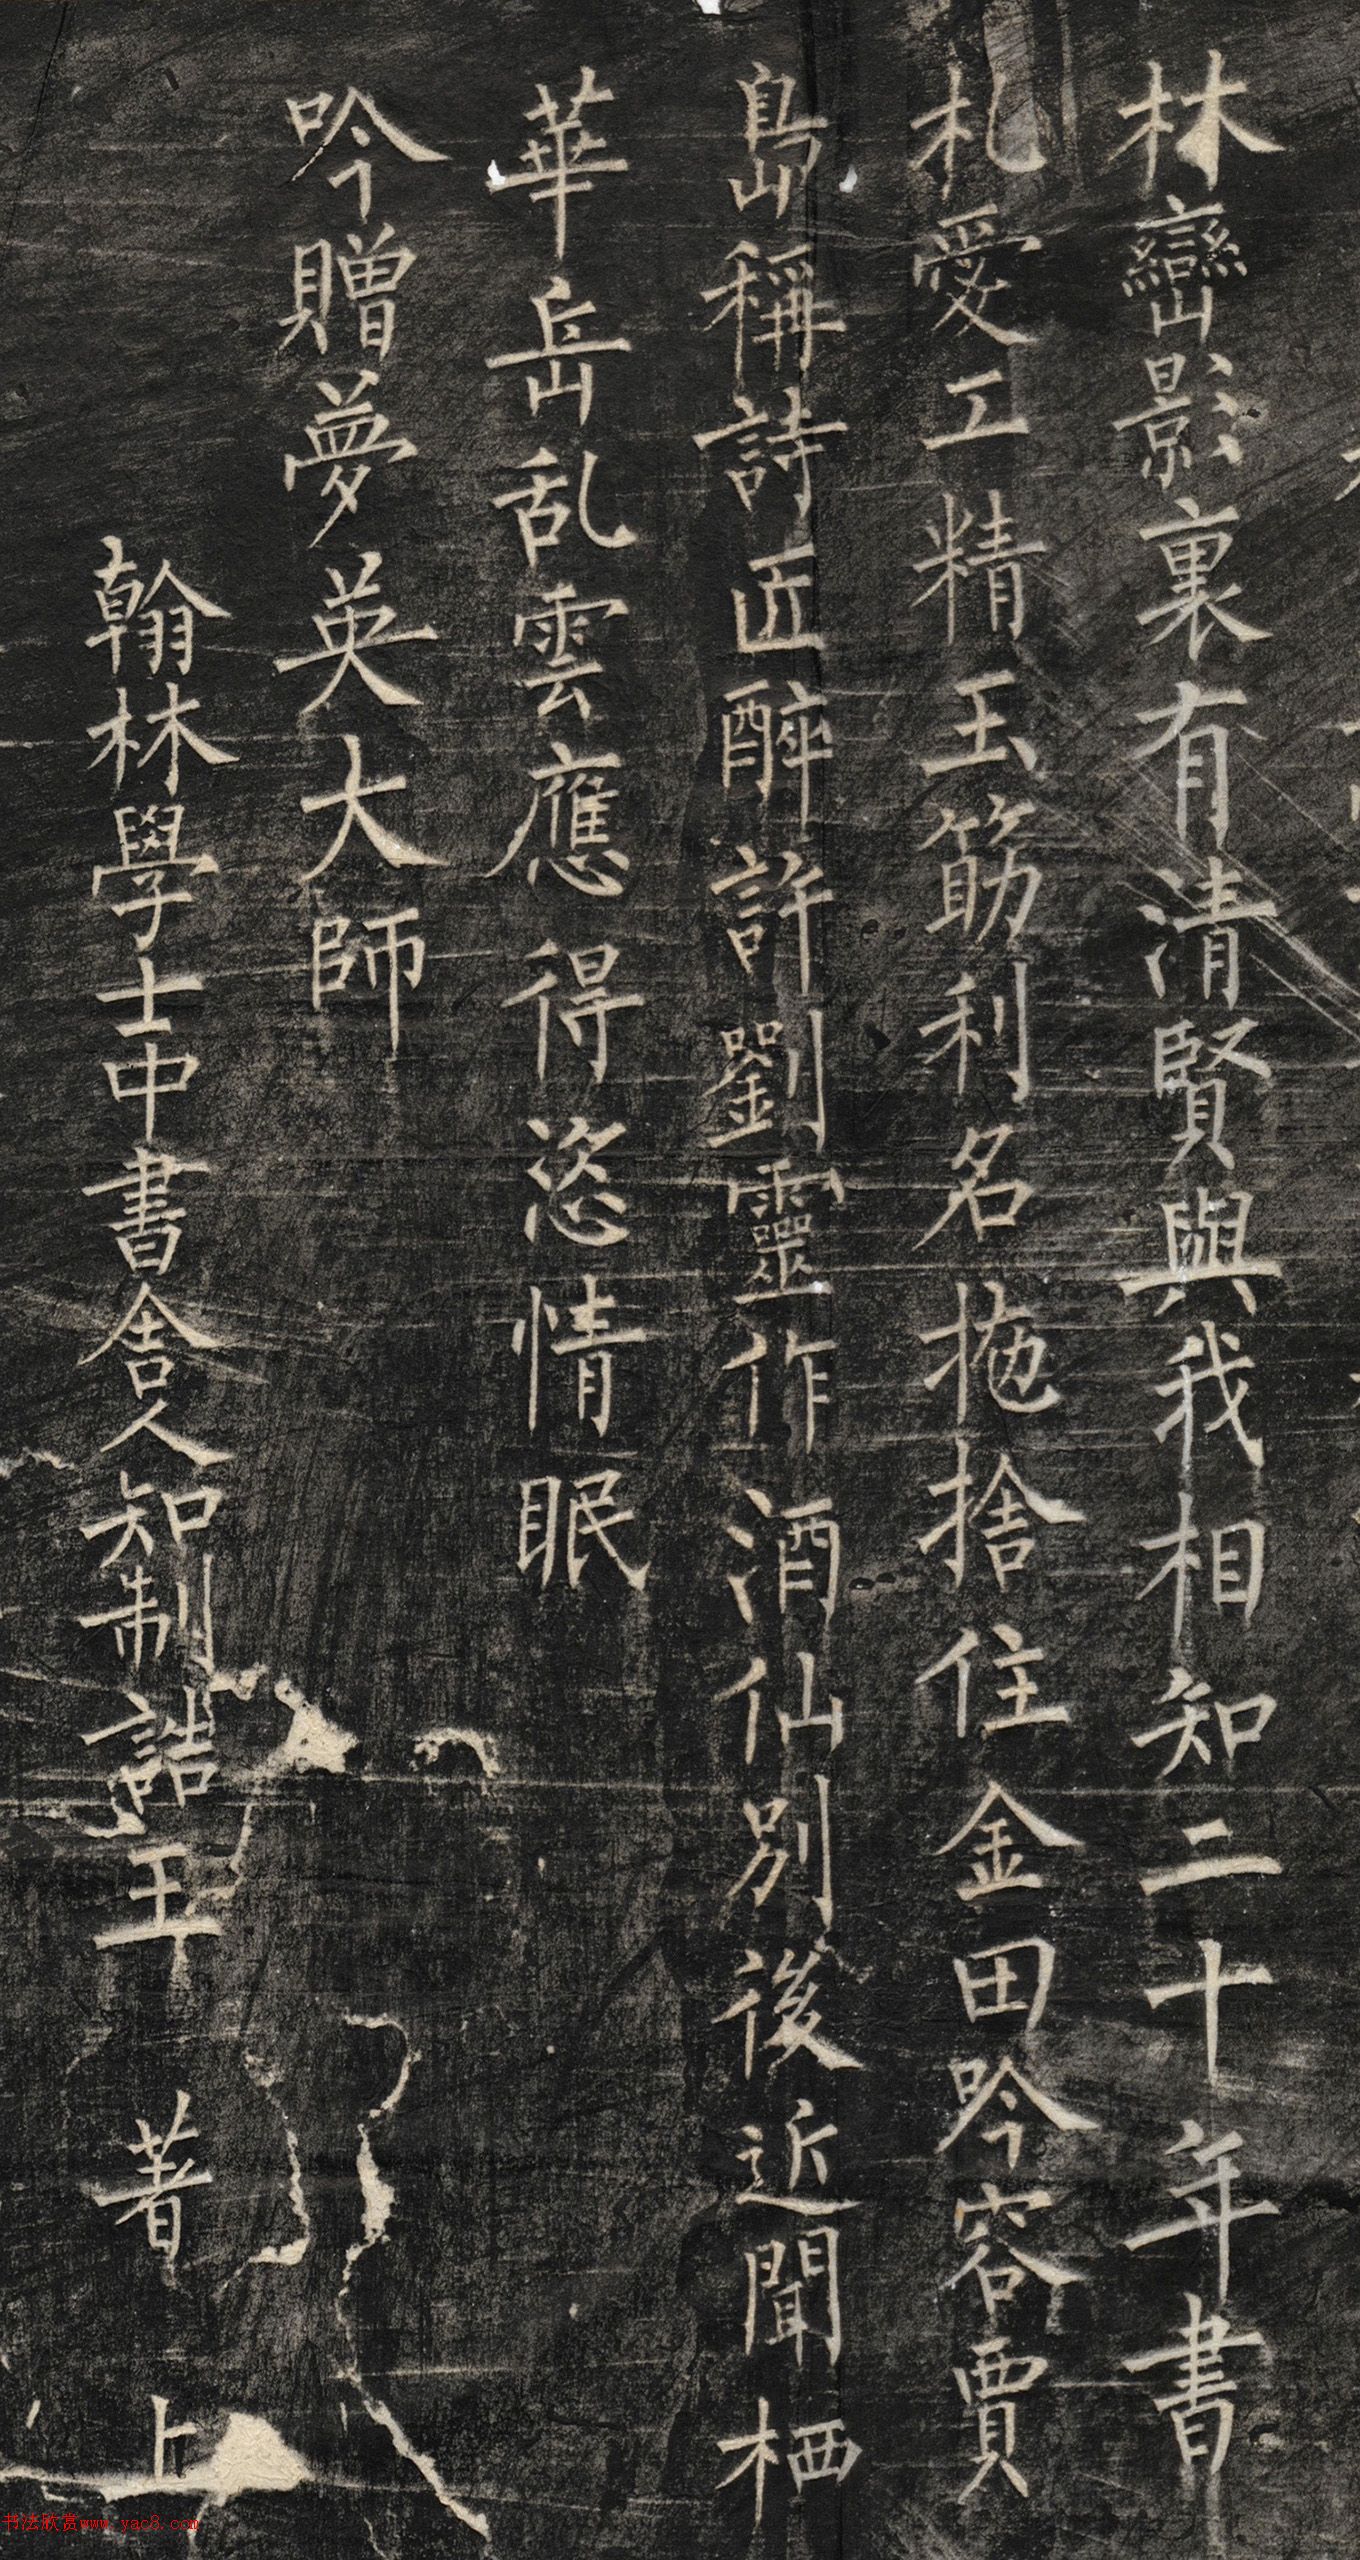 林巒影裏有清賢與我相知二十年書
札愛工精玉筯利名拖捨住金田吟容賈
島稱詩匠醉許劉靈作酒仙別後近聞栖
華岳乱雲應得恣情眠
吟贈夢英大師
翰林學士中書舍人知制誥王著上
书法欣赏www.yac8.com